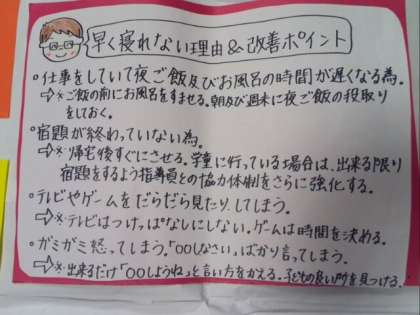 早く寝れない理由&改善ポイント
○仕事をしていて夜ご飯及びお風呂の時間が遅くなる為。
⇨※ご飯の前にお風呂をすませる。朝及び週末に夜ご飯の段取り
をしておく。
○宿題が終わっていない為。
⇨※帰宅後すぐにさせる。学童に行っている場合は、出来る限り
宿題をするよう指導員との協力体制をさらに強化する。
○テレビやゲームをだらだら見たりしてしまう。
⇨※テレビはつけっぱなしにしない。ゲームは時間を決める。
○ガミガミ怒ってしまう。「○○しなさい」ばかり言ってしまう。
⇨※出来るだけ「○○しようね」と言い方をかえる。子どもの良い所を見つける。